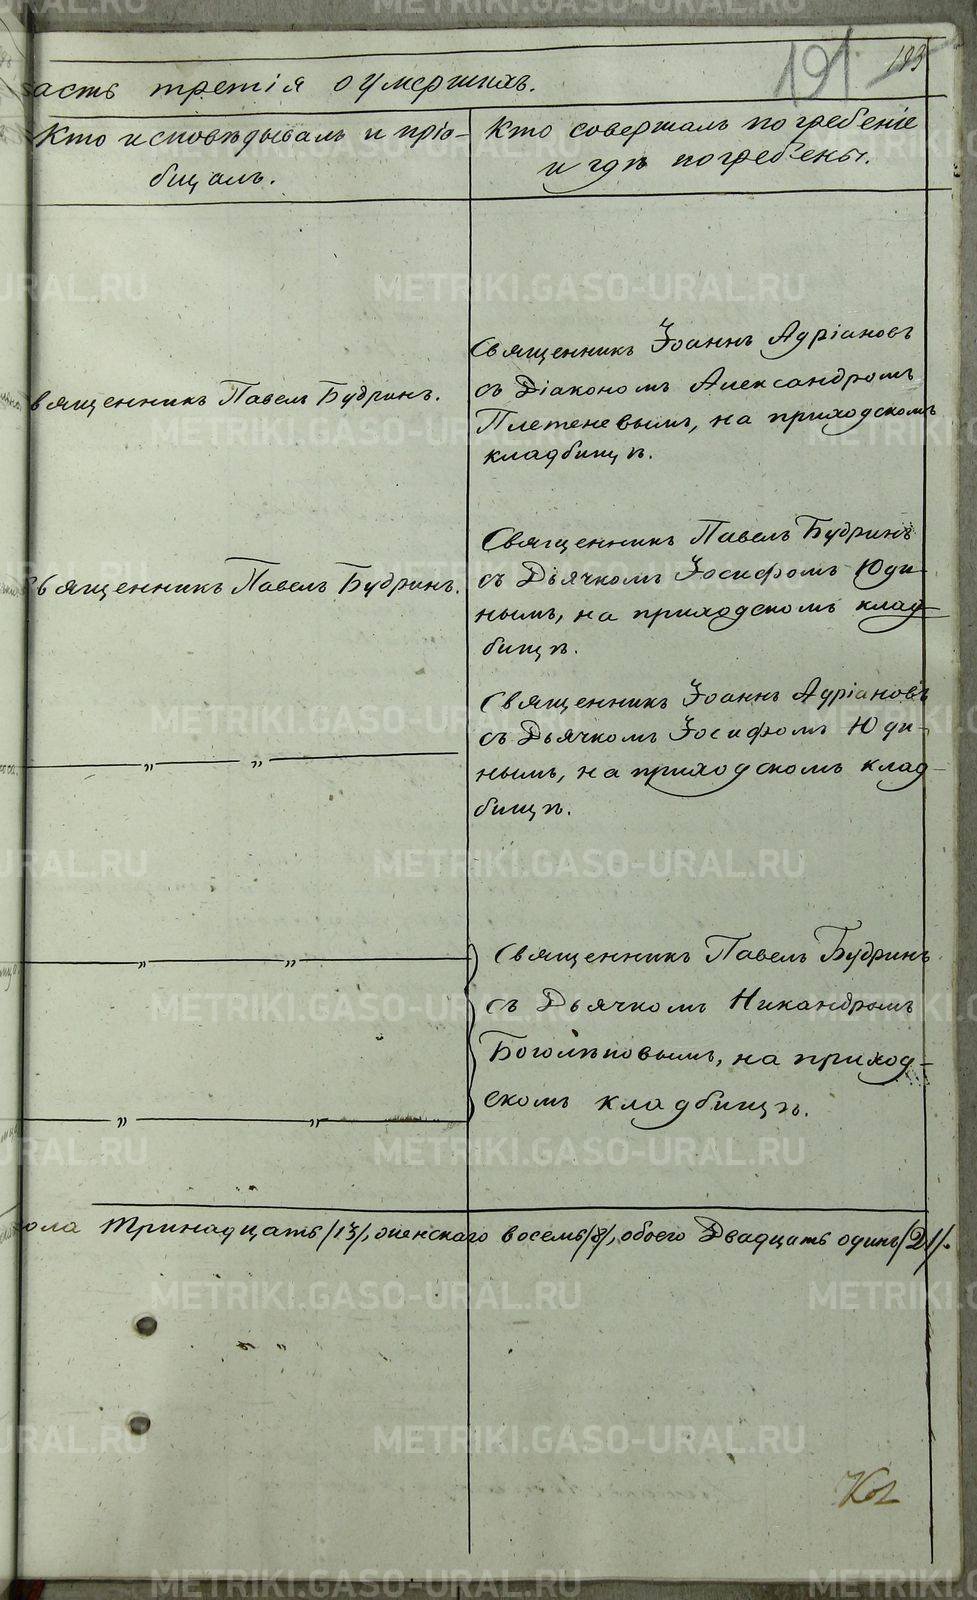 191 183
часть третія о умершихъ.
Кто исповѣдывалъ и прiо-
бщалъ.
Кто совершалъ погребеніе
и гдѣ погребены.
Священникъ Павелъ Будринъ.
Священникъ Іоаннъ Адріановъ
съ Діакономъ Александромъ
Плетеневымъ, на приходскомъ
кладбищѣ.
Священникъ Павелъ Будринъ.
Священникъ Павелъ Будринъ
съ Дьячкомъ Іосифомъ Юди-
нымъ, на приходскомъ клад-
бищѣ.
„ „
Священникъ Іоаннъ Адріановъ
съ Дьячкомъ Іосифомъ Юди-
нымъ, на приходскомъ клад-
бищѣ.
„ „
„ „
Священникъ Павелъ Будринъ
съ Дьячкомъ Никандромъ
Боголѣповымъ, на приход-
скомъ кладбищѣ.
пола тринадцать /13/, женскаго восемь /8/, обоего Двадцать одинъ /21/.
METRIKI.GASO-URAL.RU